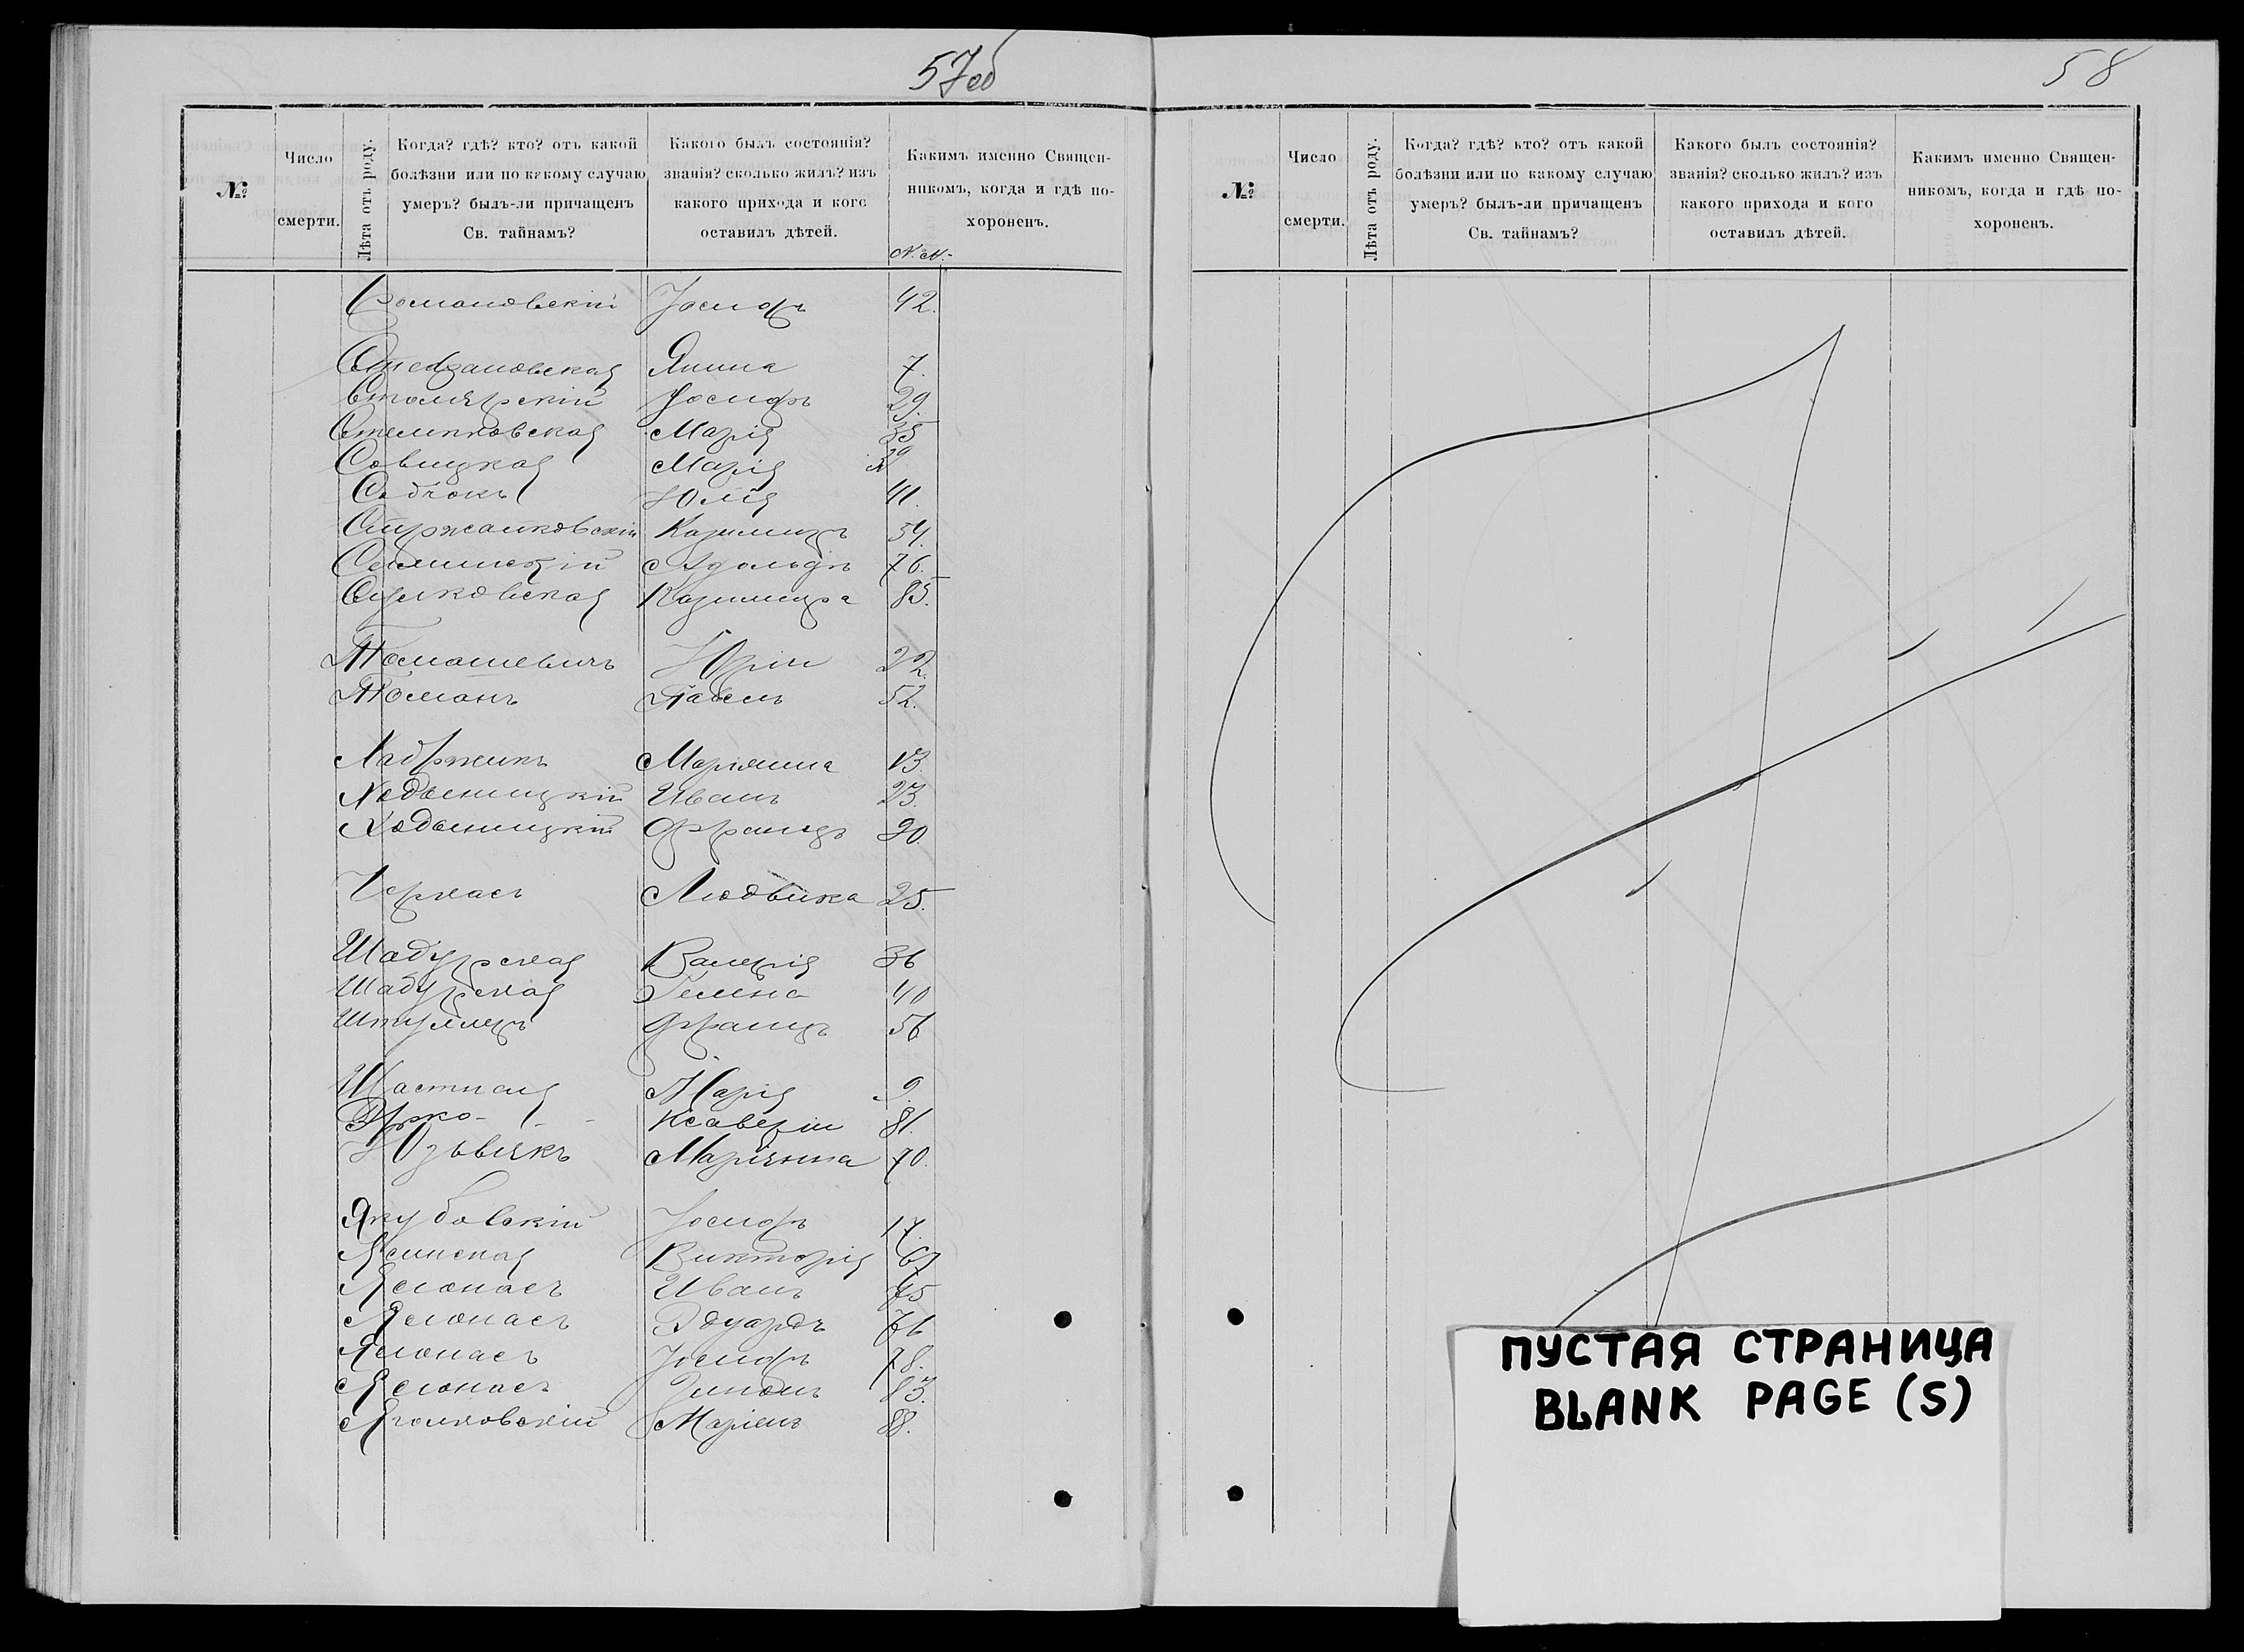 57об
№
Число
смерти.
Лѣта отъ роду.
Когда? гдѣ? кто? отъ какой
болѣзни или по какому случаю
умеръ? былъ-ли причащенъ
Св. тайнамъ?
Какого былъ состоянія?
званія? сколько жилъ? изъ
какого прихода и кого
оставилъ дѣтей.
Какимъ именно Священ-
никомъ, когда и гдѣ по-
хороненъ.
Іосифъ 42.
Стефановская Янина 7.
Столярскій Іосифъ 29.
Марія 35
Савицкая Марія 39
Юлія 41.
Казимиръ 54.
Адольфъ 76.
Казимира 85.
Томашевичъ Юрій 22.
Томанъ Павелъ 52.
Маріянна 13.
Иванъ 23.
Францъ 90.
Черкасъ Людвика 25.
Шадурская Валерія 36
Шадурская Гелена 40
Францъ 56
Шастная Марія 9.
Ксаверій 81.
Юзьвякъ Маріянна 70.
Якубовскій Іосифъ 17.
Ясинская Викторія 67
Ясюнасъ Иванъ 75
Ясюнасъ Эдуардъ 76
Ясюнасъ Іосифъ 78.
Ясюнасъ 83.
Маріянъ 88.
58
№
Число
смерти.
Лѣта отъ роду.
Когда? гдѣ? кто? отъ какой
болѣзни или по какому случаю
умеръ? былъ-ли причащенъ
Св. тайнамъ?
Какого былъ состоянія?
званія? сколько жилъ? изъ
какого прихода и кого
оставилъ дѣтей.
Какимъ именно Священ-
никомъ, когда и гдѣ по-
хороненъ.
ПУСТАЯ СТРАНИЦА
BLANK PAGE (S)